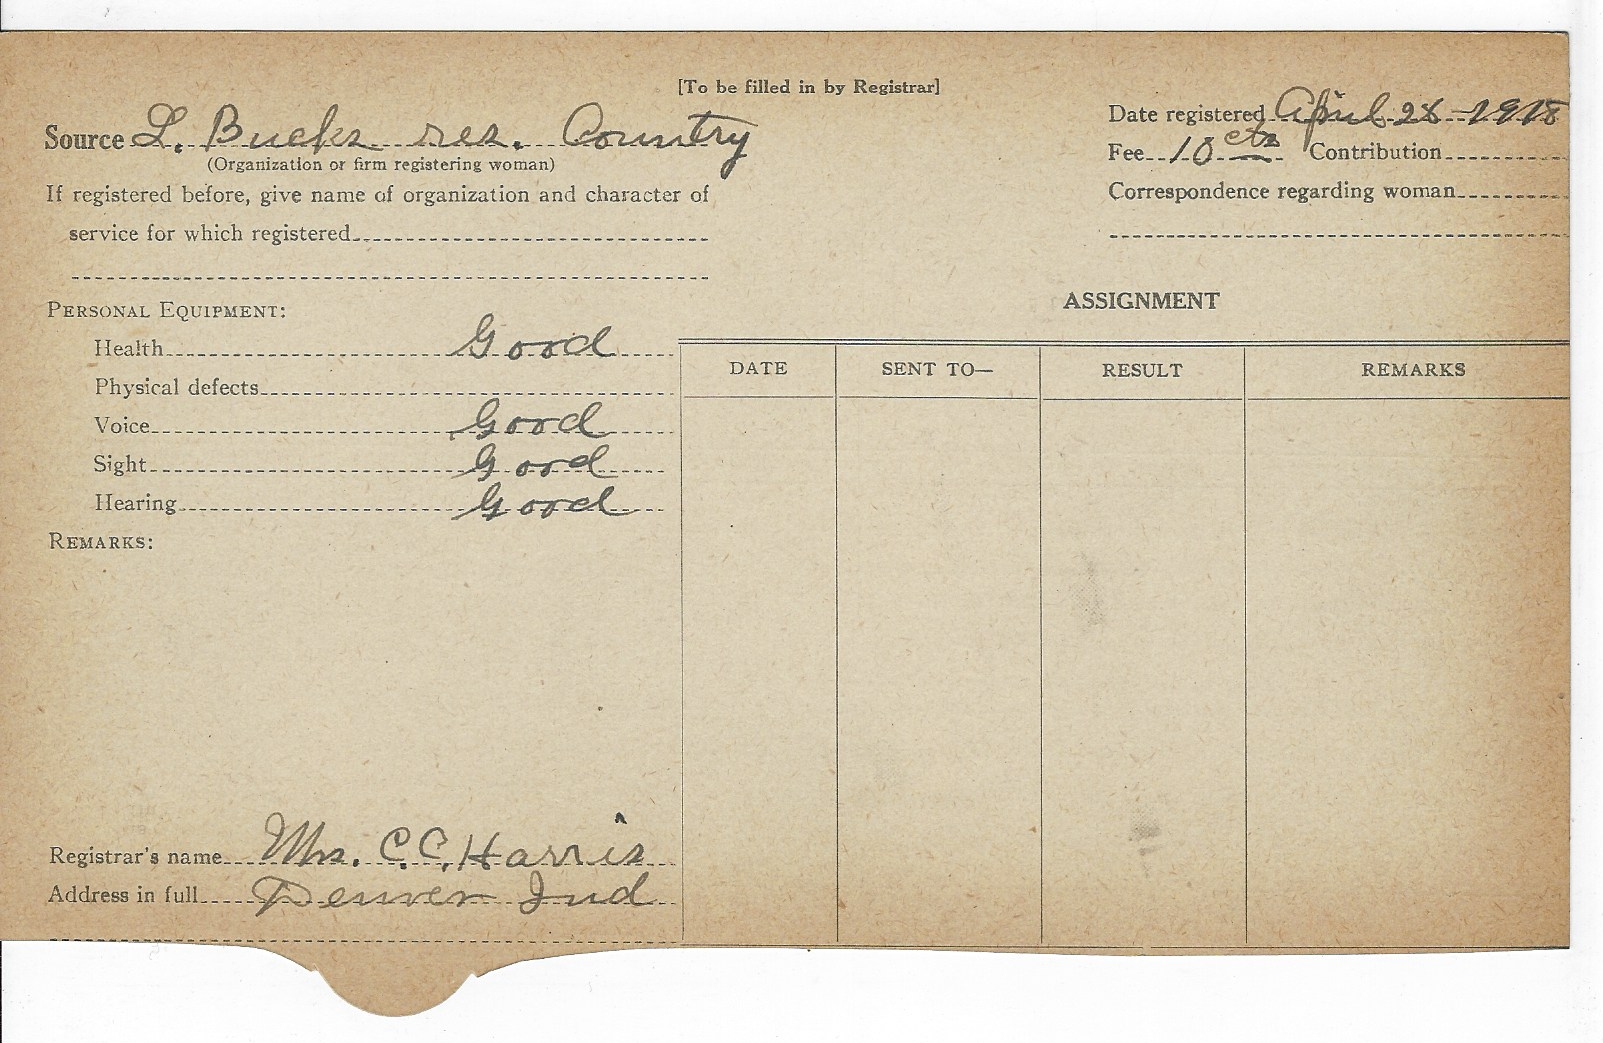 [To be filled in by Registrar]
Source L. Bucks res. Country
(Organization or firm registering woman)
If registered before, give name of organization and character of
service for which registered
Date registered April 28 - 1918
Fee 10 cts Contribution
Correspondence regarding woman
PERSONAL EQUIPMENT:
Health Good
Physical defects
Voice Good
Sight Good
Hearing Good
REMARKS:
Registrar's name Mrs. C.C. Harris
Address in full Denver Ind
ASSIGNMENT
DATE SENT TO— RESULT REMARKS